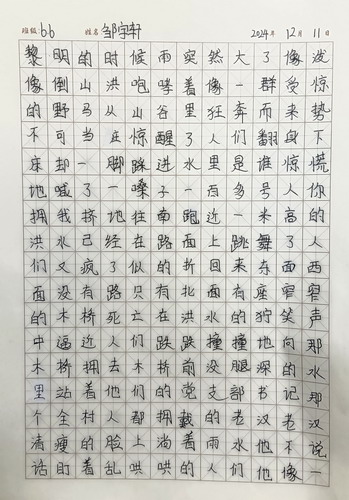 班级:66 姓名 邹宇轩 2024年12月11日
黎明的时候雨突然大了像泼
像倒山洪咆哮着像一群受惊
的野马从山谷里狂奔而来势
不可当庄惊醒了人们翻身下
床却一脚踩进水里是谁惊慌
地喊了一嗓子一百多号人你
拥我挤地往南跑近一米高的
洪水已经在路面上跳舞了人
们又疯了似的折回来东面西
面没有路只有北面有座窄窄
的木桥死亡在洪水的狞笑声
中逼近人们跌跌撞撞地向那
木桥拥去木桥前没腿深的水
里站着他们的党支部书记那
个全村人都拥戴的老汉老汉
清瘦的脸上淌着雨水他不说
话盯着乱哄哄的人们他像一